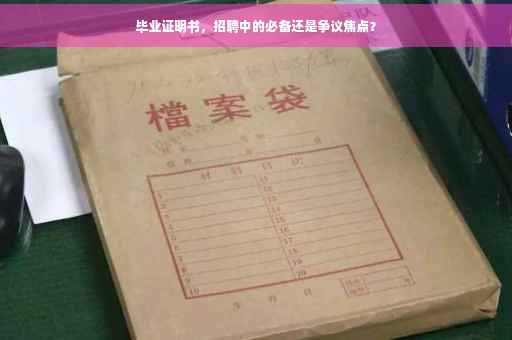 毕业证明书，招聘中的必备还是争议焦点？
檔案袋
材料目次
1 11
2 12
3 13
4 14
5 15
6 16
7 17
8 18
9 19
10 20
年 月 日